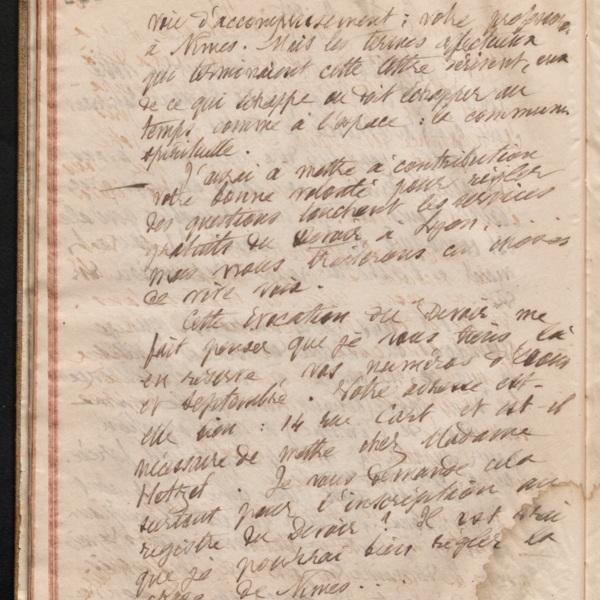 voie d'accomplissement : votre
à Nîmes. Mais les termes affectueux
qui terminaient cette lettre restent,
de ce qui échappe ou doit échapper au
temps comme à l'espace : la communion
spirituelle.
J'aurai à mettre à contribution
votre bonne volonté pour régler
des questions touchant les services
gratuits du Devoir à Lyon....
mais nous traiterons ces choses
de vive voix.
Cette évocation du "Devoir" me
fait penser que je vous tiens là
en réserve vos numéros d'Août
et septembre. Votre adresse est-
elle bien : 14 rue et est-il
nécessaire de mettre chez Madame
. Je vous demande cela
surtout pour l'inscription au
registre du Devoir ! Il est vrai
que je pourrai bien régler la
de Nîmes...